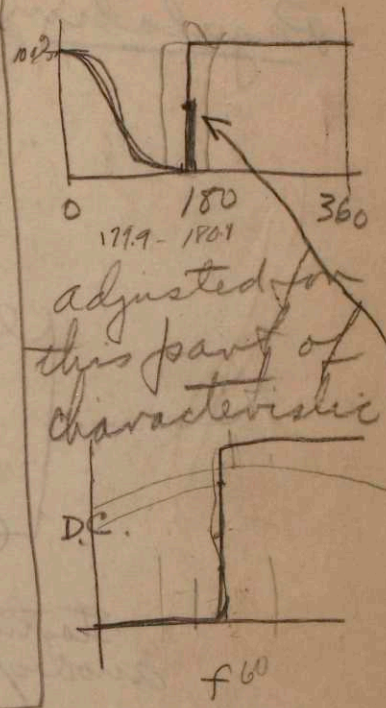 0 180 360
179.9 - 180.1
adjusted for
this part of
characteristic
D.C.
f 60